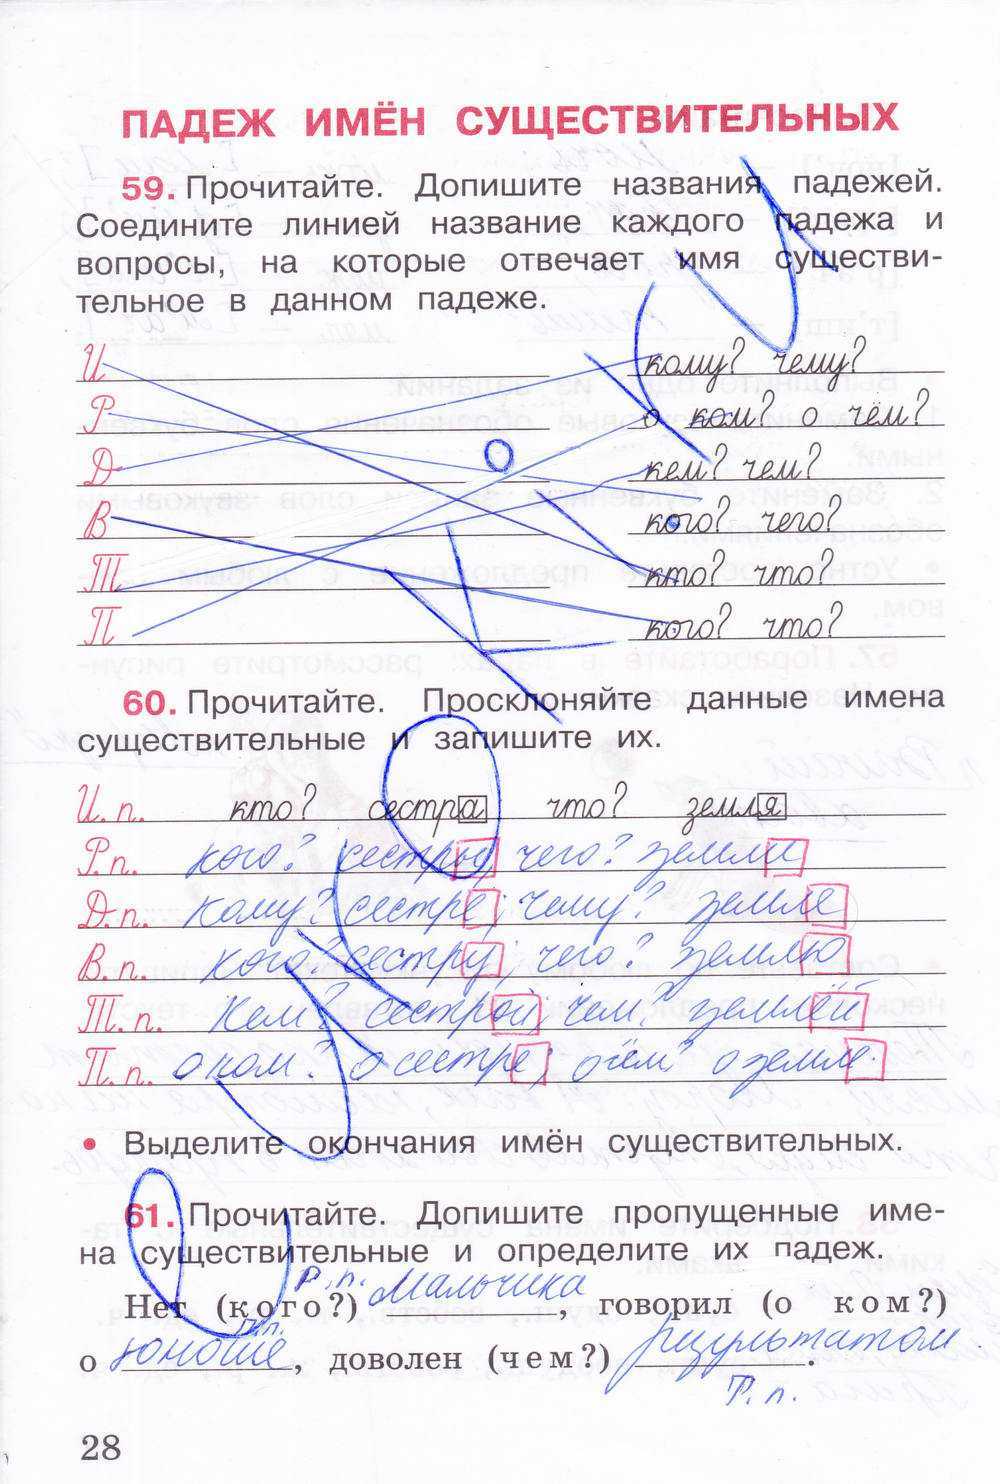 ПАДЕЖ ИМЁН СУЩЕСТВИТЕЛЬНЫХ
59. Прочитайте. Допишите названия падежей.
Соедините линией название каждого падежа и
вопросы, на которые отвечает имя существи-
тельное в данном падеже.
И кому? чему?
Р о ком? о чём?
Д кем? чем?
В кого? чего?
Т кто? что?
П кого? что?
60. Прочитайте. Просклоняйте данные имена
существительные и запишите их.
И. п. кто? сестра что? земля
Р. п. кого? сестры чего? земли
Д. п. кому? сестре; чему? земле
В. п. кого? сестру; чего? землю
Т. п. Кем? сестрой; чем? землёй
П. п. о ком? о сестре; о чём? о земле.
• Выделите окончания имён существительных.
61. Прочитайте. Допишите пропущенные име-
на существительные и определите их падеж.
Р. п.
Нет (кого?) Мальчика, говорил (о ком?)
П. п.
о юноше, доволен (чем?) результатом.
Т. п.
28